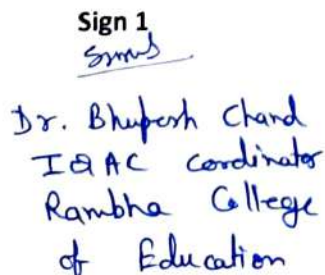 Sign 1
Dr. Bhupesh Chand
IQAC coordinator
Rambha College
of Education